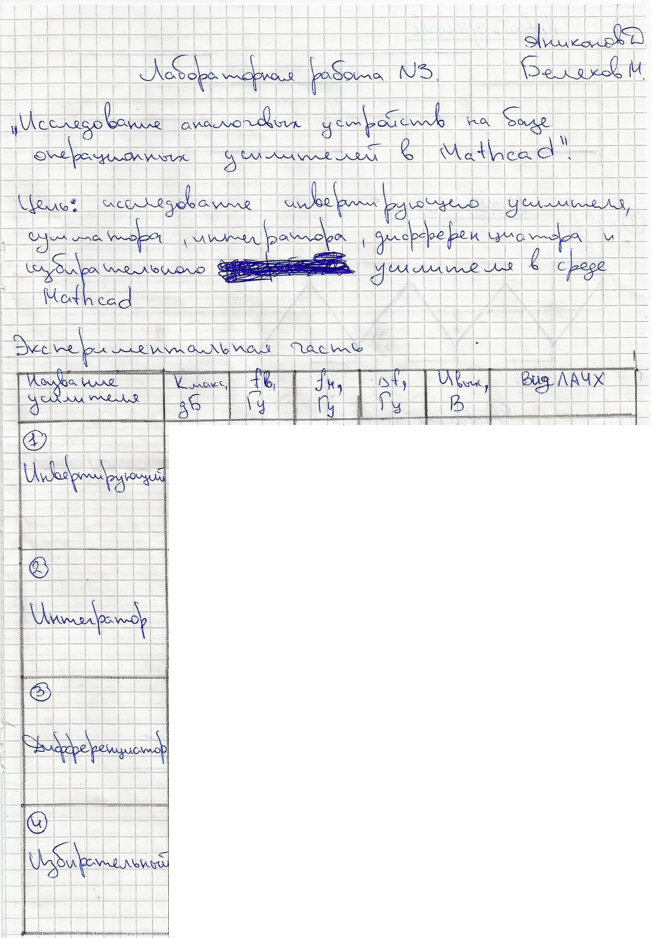 Аниконов Д
Лабораторная работа N3. Беляков М.
"Исследование аналоговых устройств на базе
операционных усилителей в Mathcad".
Цель: исследование инвертирующего усилителя,
сумматора, интегратора, дифференциатора и
избирательного усилителя в среде
Mathcad
Экспериментальная часть
Название усилителя Kмакс, дБ fв, Гц fн, Гц Δf, Гц Uвых, В Вид ЛАЧХ
1
Инвертирующий
2
Интегратор
3
Дифференциатор
4
Избирательный